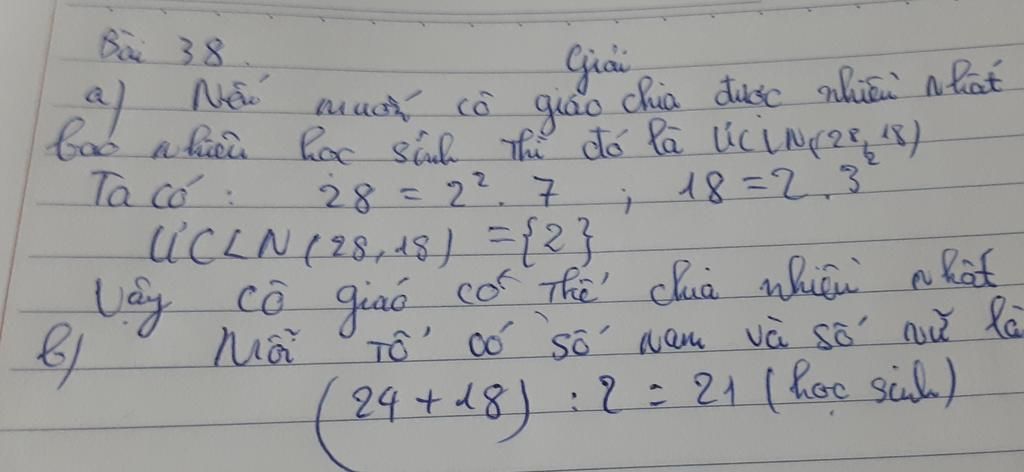 Bài 38.
Giải
a) Nếu muốn cô giáo chia được nhiều nhất
bao nhiêu học sinh thì đó là ƯCLN(28,18)
Ta có: 28 = 2². 7 ; 18 = 2 . 3²
ƯCLN(28,18) = {2}
Vậy cô giáo có thể chia nhiều nhất
b) Mỗi tổ có số nam và số nữ là
(24 + 18) : 2 = 21 (học sinh)